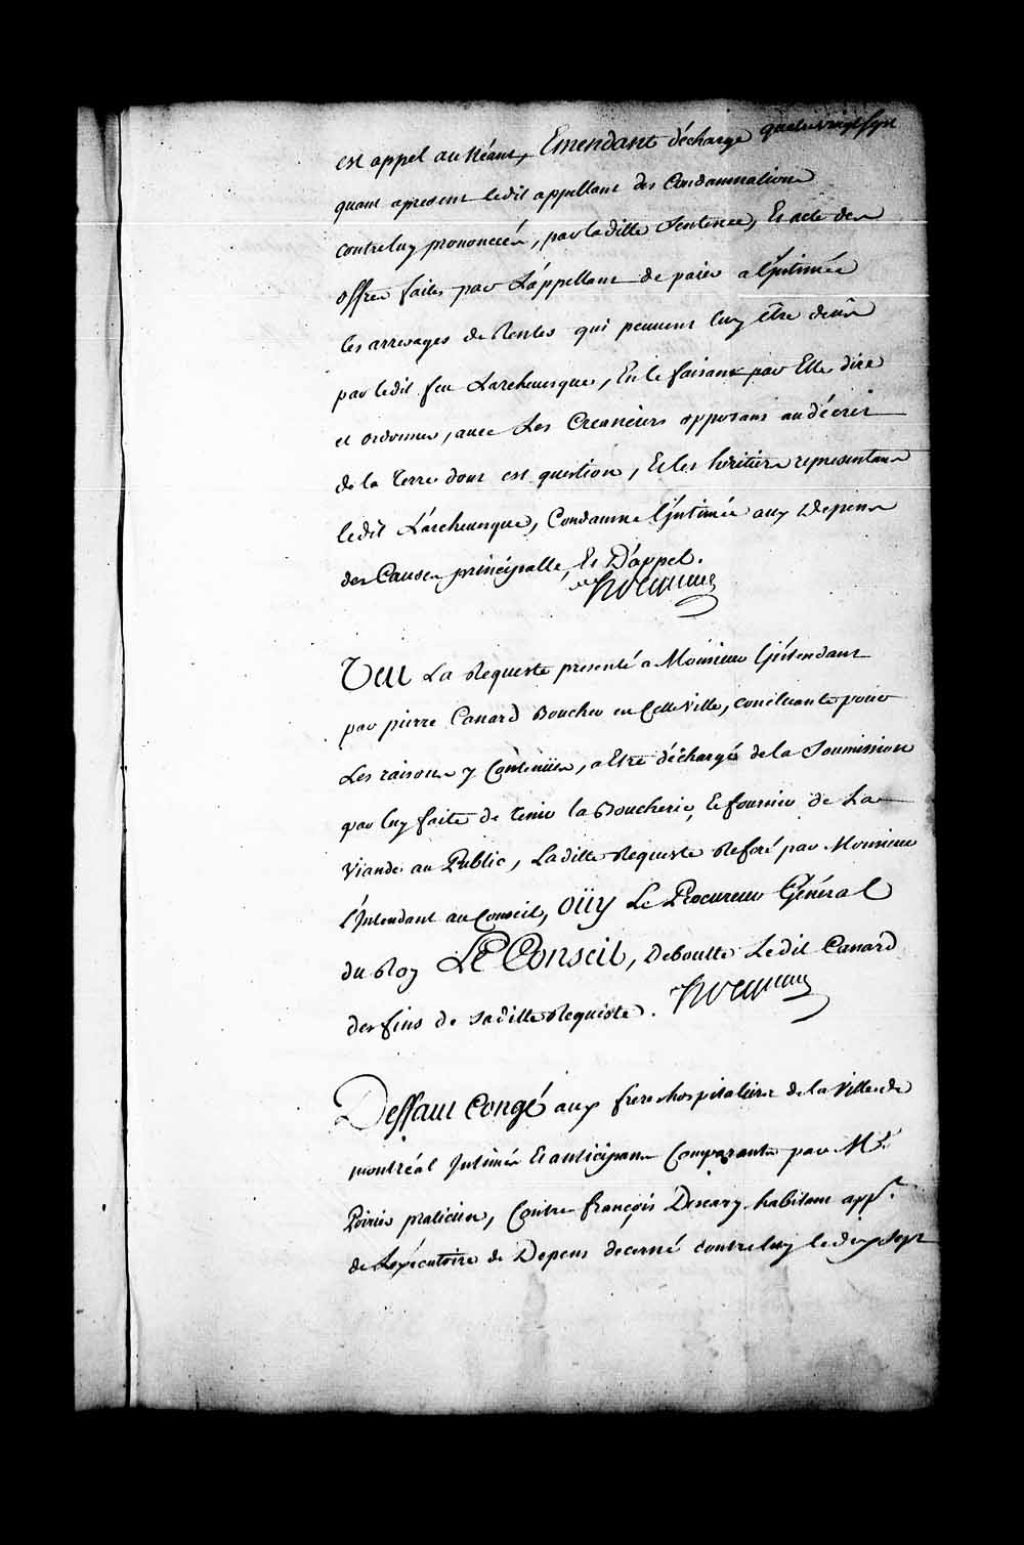 quatrevingt sept
est appel au Néant, Emendant décharge
quant apresent ledit appellant des Condamnations
contre luy prononcées, par laditte Sentence, Et acte des
offres faites par L'appellant de paier a l'Intimée
les arrerages de Rentes qui peuvent luy être deües
par ledit feu Larchevesque, En le faisant par Elle dire
et ordonner, avec Les Creanciers opposans au décret
de la Terre dont est question, Et les heritiers representans
ledit Larchevesque, Condamne l'Intimée aux Depens
des Causes principalle, Et D'appel.
Hocquart
Veu La Requeste presenté a Monsieur l'Intendant
par pierre Canard Boucher en Cette Ville, concluante pour
Les raisons y Contenües, a Estre déchargé de la Soumission
par luy faite de tenir la Boucherie, et fournir de La
Viande au Public, Laditte Requeste Referé par Monsieur
l'Intendant au Conseil, Oüy Le Procureur Général
du Roy Le Conseil, Deboutte Ledit Canard
des fins de Saditte Requeste. Hocquart
Deffaut Congé aux freres hospitaliers de la Ville de
montréal Intimés Et anticipans Comparants par Me.
Poirier praticien, Contre françois Descary habitant appt.
de L'exécutoire de Depens decerné contre luy le dix sept